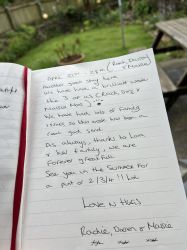 April 21st - 25th (Rach, Darren & Maisie)
Another great stay here
We have had a brilliant week
the 3 of us (Rach, Daz &
Maisie Moo)
We have had lots of family
issues so this week has been a
real god send.
As always, thanks to Lora
& her family, we are
forever grateful.
See you in the Summer for
a pint or 2/3/4!! lol
Love n Hugs
Rachie, Darren & Maisie